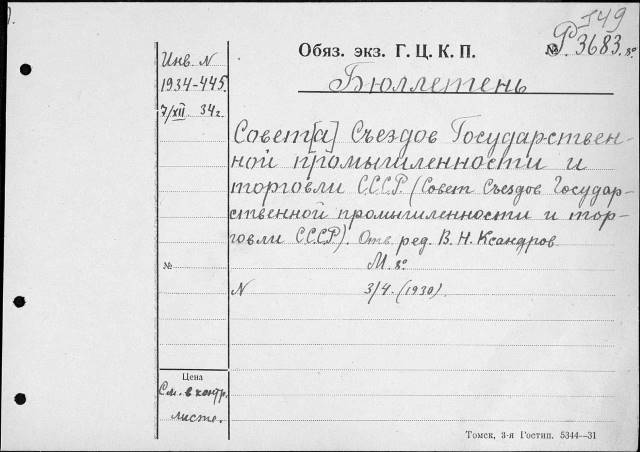 Т49
Обяз. экз. Г. Ц. К. П. № Р 3683. 8°.
Инв. N
1934-445.
7/XII 34г.
Бюллетень
Совет[а] Съездов Государствен-
ной промышленности и
торговли С.С.С.Р. (Совет Съездов Государ-
ственной промышленности и тор-
говли С.С.С.Р.). Отв. ред. В. Н. Ксандров.
№ М. 8°.
N 3/4. (1930).
Цена
См. в контр.
листе.
Томск, 3-я Гостип. 5344—31